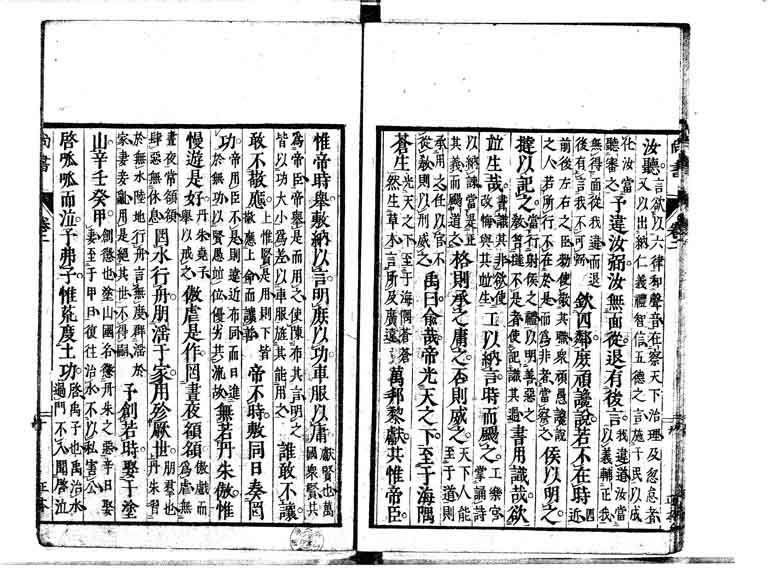 汝聽。言欲以六律和聲音在察天下治理及忽怠者又以出納仁義禮智信五德之言施于民以成
化汝當聽審之予違汝弼汝無面從退有後言我違道汝當以義輔正我
無得面從我違而退後有言我不可弼欽四鄰庶頑讒說若不在時四近
前後左右之臣勑使敬其職衆頑愚讒說之人若所行不在於是而為非者當察之侯以明之
撻以記之當行射侯之禮以明善惡之教笞撻不是者使記識其過書用識哉欲
竝生哉書識其非欲使改悔與其竝生工以納言時而颺之。工樂官掌誦詩
以納諫當是正其義而颺道之格則承之庸之否則威之。天下人能至于道則
承用之任以官不從教則以刑威之禹曰俞哉帝光天之下至于海隅
蒼生光天之下至于海隅蒼蒼然生草木言所及廣遠萬邦黎獻共惟帝臣
惟帝時舉敷納以言明庶以功車服以庸獻賢也萬國衆賢共
為帝臣帝舉是而用之使陳布其言明之皆以功大小為差以車服旌其能用之誰敢不讓
敢不敬應。上惟賢是用則下皆敬應上命而讓善帝不時敷同日奏罔
功。帝用臣不是則遠近布同而日進於無功以賢愚竝位優劣共流故無若丹朱傲惟
慢遊是好丹朱堯子舉以戒之傲虐是作罔晝夜頟頟傲戲而為虐無
晝夜常頟頟肆惡無休息罔水行舟朋淫于家用殄厥世。朋羣也丹朱習
於無水陸地行舟言無度羣淫於家妻妾亂用是絕其世不得嗣予創若時娶于塗
山辛壬癸甲。創懲也塗山國名懲丹朱之惡辛日娶妻至于甲日復往治水不以私害公
啓呱呱而泣予弗子惟荒度土功啓禹子也禹治水過門不入聞啓泣
尚書 卷二